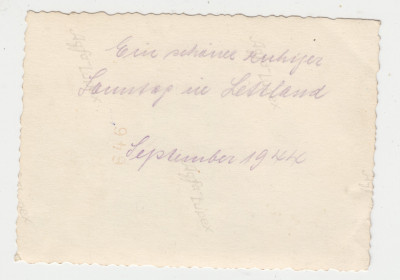 Ein schöner ruhiger
Sonntag in Lettland
September 1944